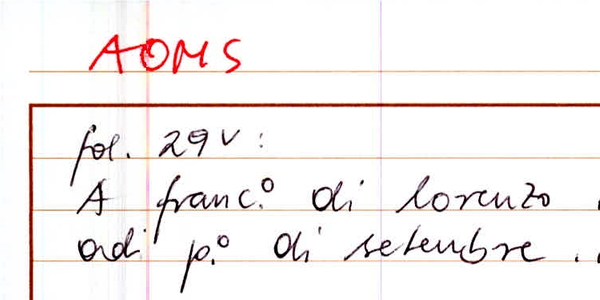 AOMS
fol. 29v:
A franc.º di lorenzo .
adi p.º di setembre ..